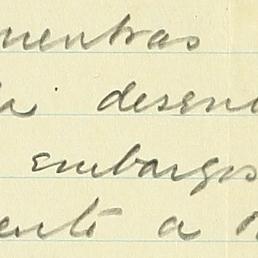 mientras
desen
embargos
ente a